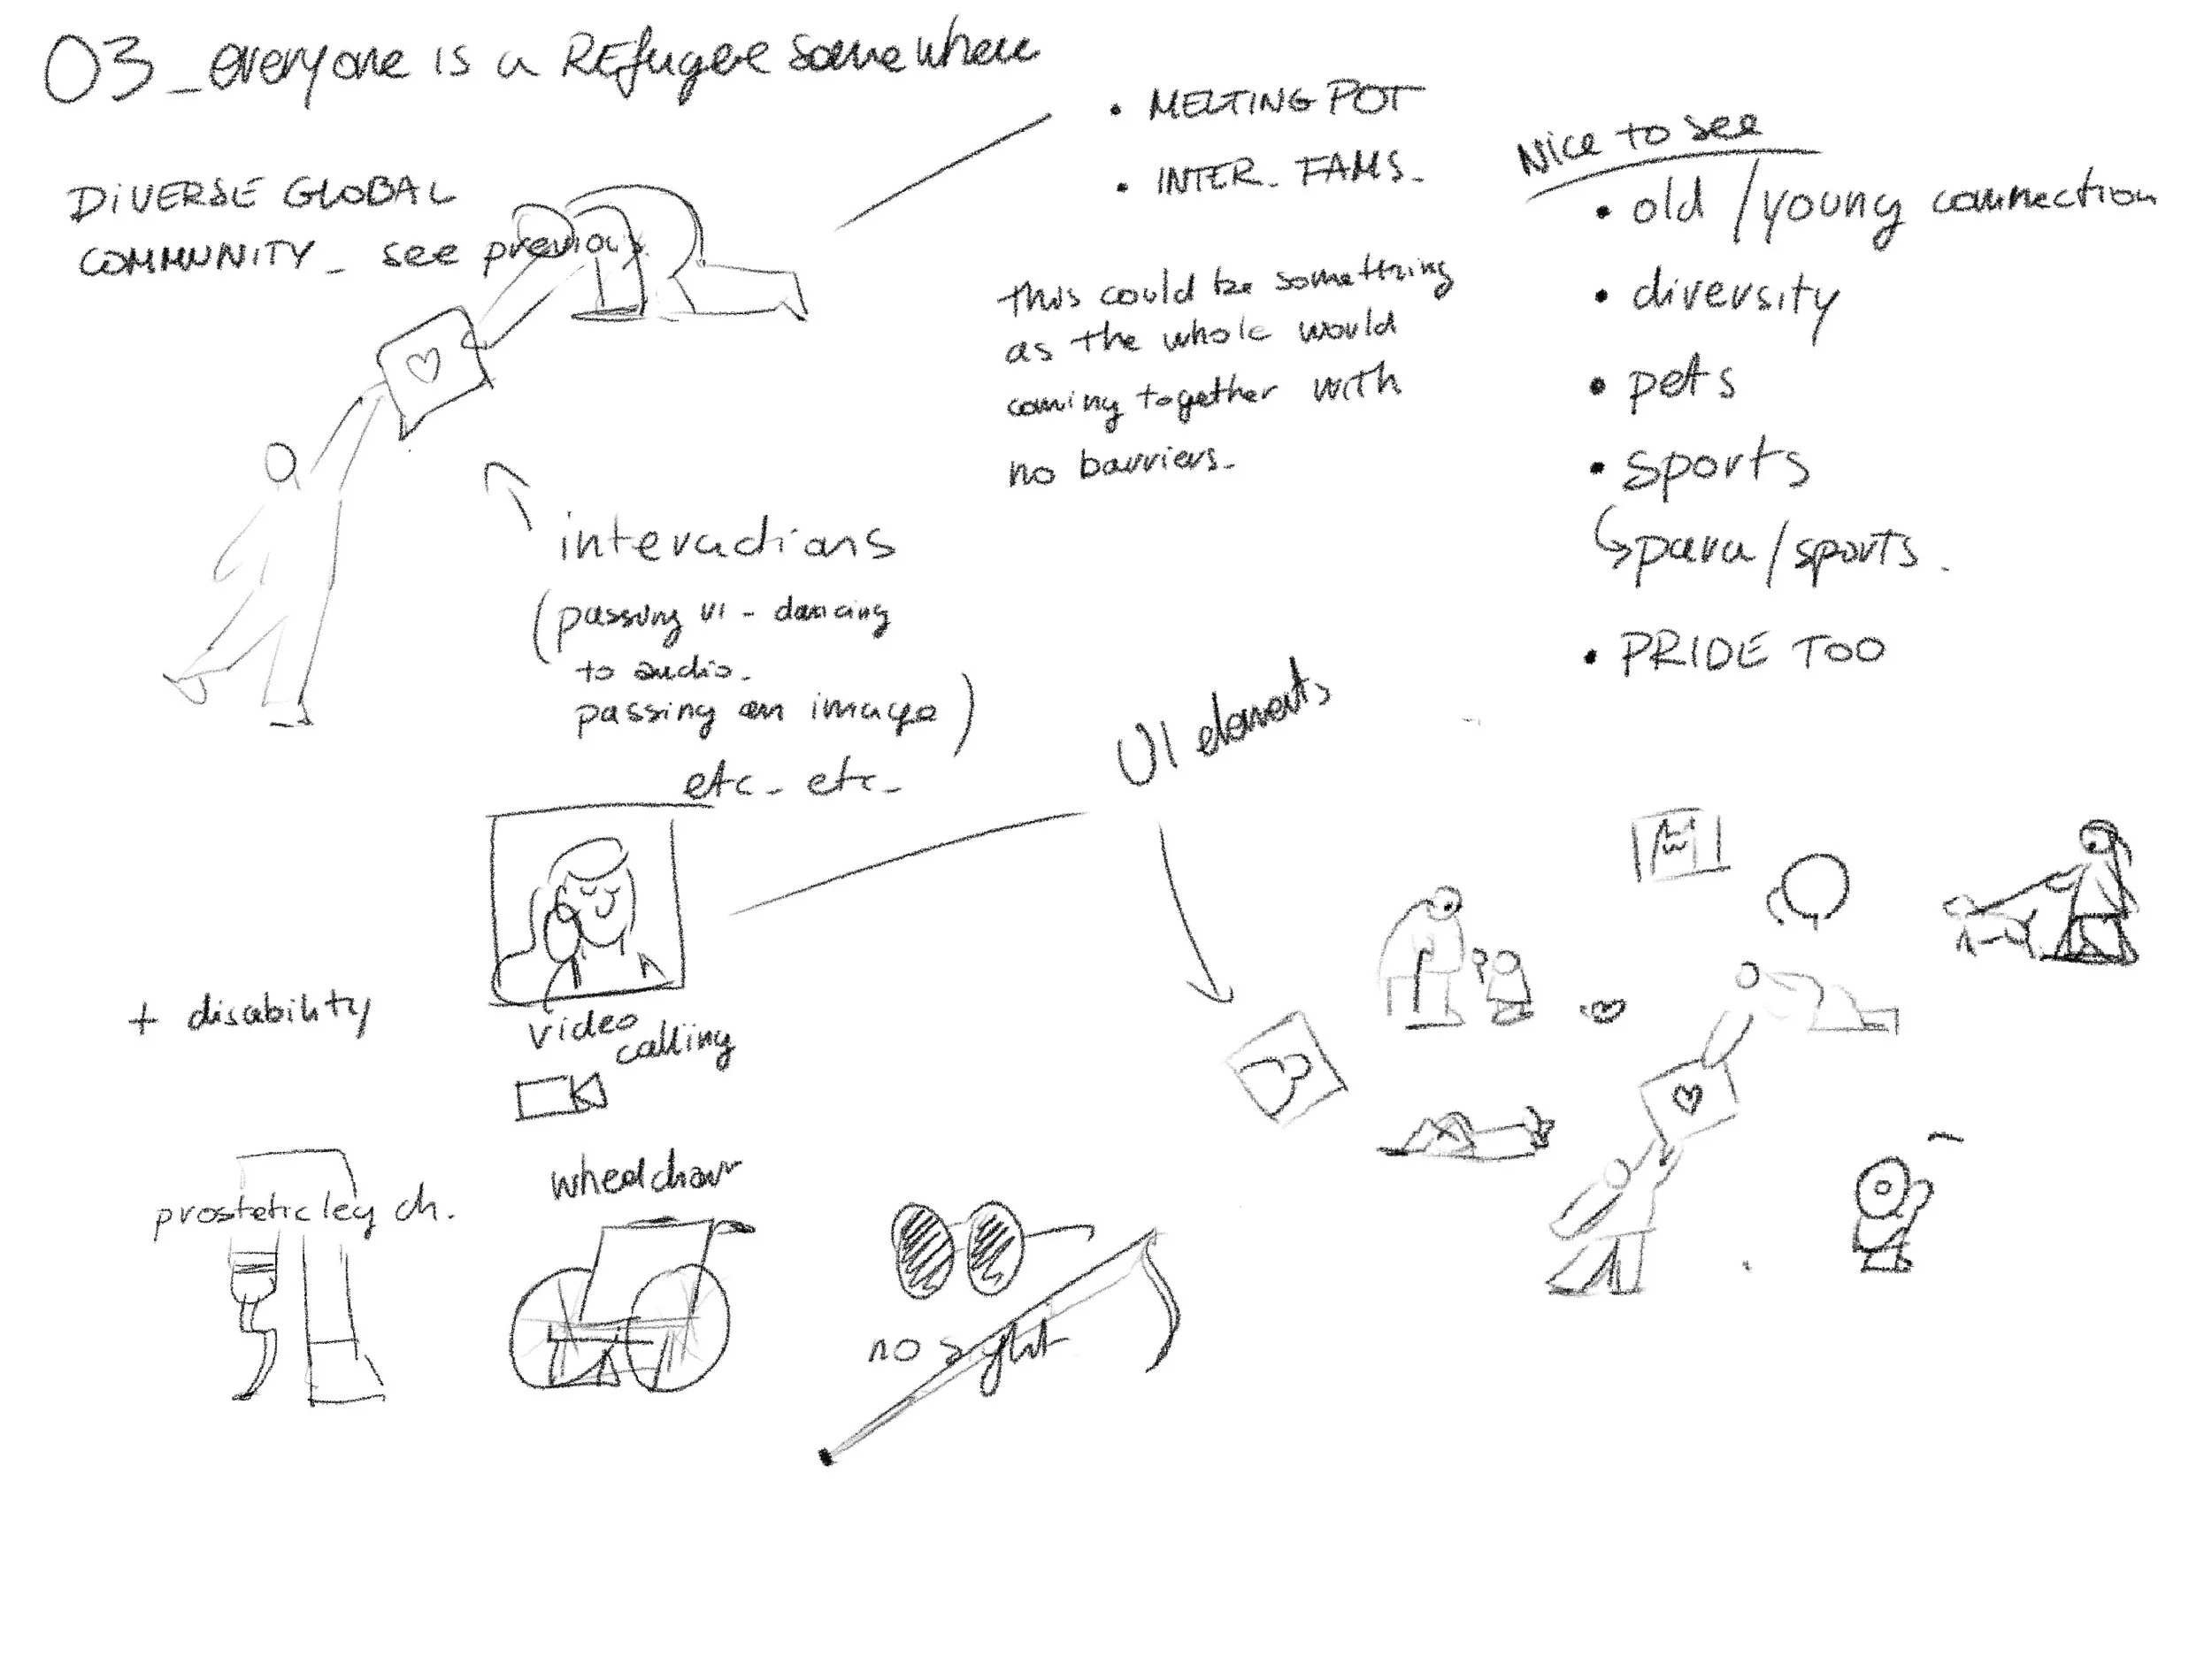 03_everyone is a REfugee somewhere
DiVERSE GLOBAL
COMMUNITY_ see previous.
• MELTING POT
• INTER_ FAMS_
this could be something
as the whole world
coming together with
no barriers_
Nice to see
• old / young connection
• diversity
• pets
• sports
para / sports.
• PRIDE TOO
interactions
(passing UI - dancing
to audio_
passing an image)
etc_ etc_
UI elements
+ disability
video
calling
prostetic leg ch.
wheelchair
no sight